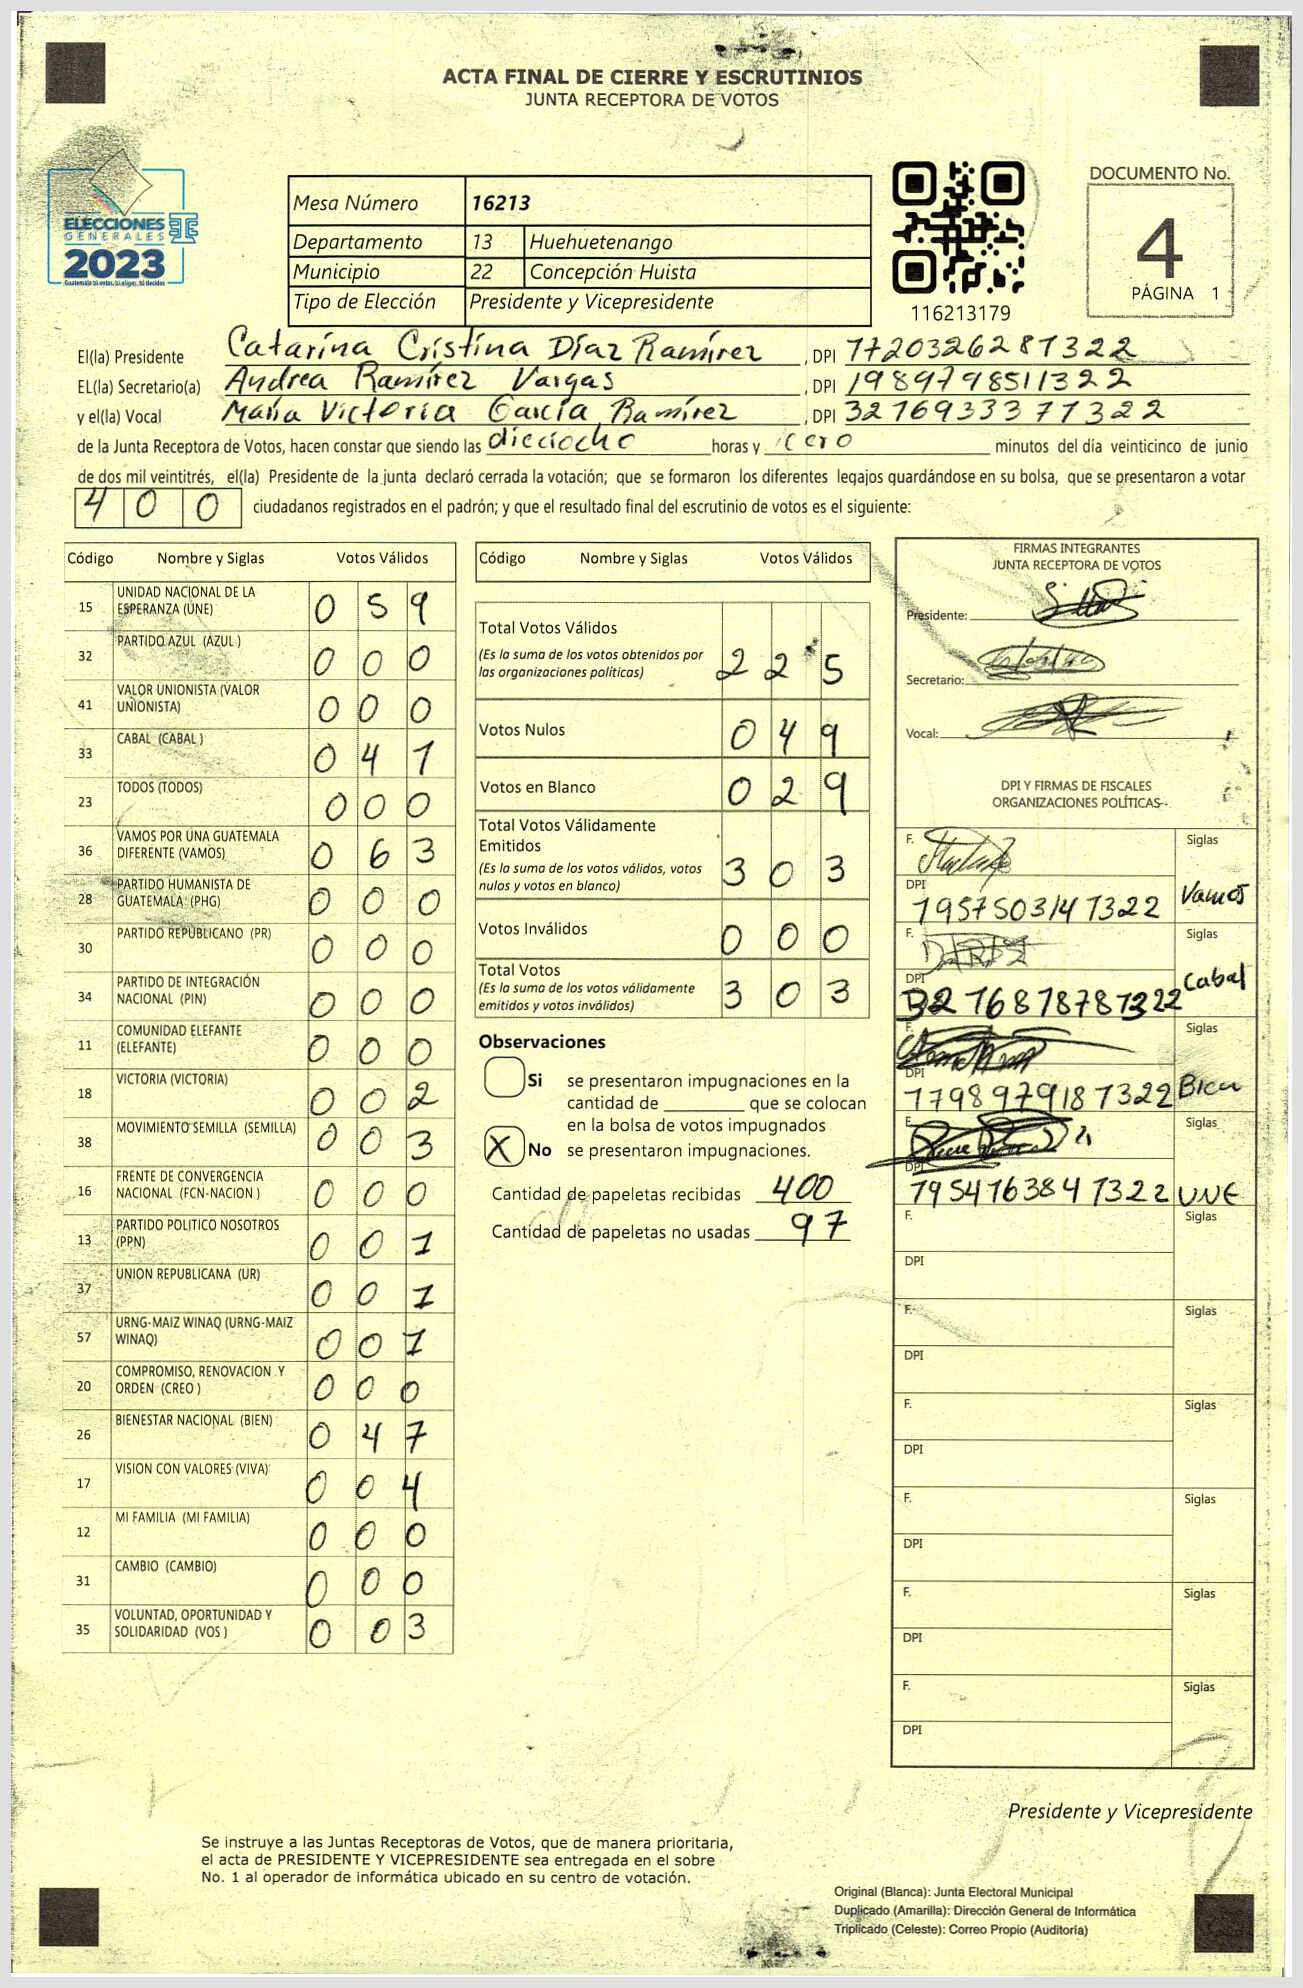 ACTA FINAL DE CIERRE Y ESCRUTINIOS
JUNTA RECEPTORA DE VOTOS
ELECCIONES
GENERALES
2023
Guatemala tú votas, tú eliges, tú decides
Mesa Número 16213
Departamento 13 Huehuetenango
Municipio 22 Concepción Huista
Tipo de Elección Presidente y Vicepresidente
116213179
DOCUMENTO No.
4
PÁGINA 1
El(la) Presidente Catarina Cristina Díaz Ramírez , DPI 1720326281322
EL(la) Secretario(a) Andrea Ramírez Vargas , DPI 1989798511322
y el(la) Vocal María Victoria García Ramírez , DPI 3276933371322
de la Junta Receptora de Votos, hacen constar que siendo las dieciocho horas y cero minutos del día veinticinco de junio
de dos mil veintitrés, el(la) Presidente de la junta declaró cerrada la votación; que se formaron los diferentes legajos guardándose en su bolsa, que se presentaron a votar
400 ciudadanos registrados en el padrón; y que el resultado final del escrutinio de votos es el siguiente:
Código Nombre y Siglas Votos Válidos
15 UNIDAD NACIONAL DE LA ESPERANZA (UNE) 0 5 9
32 PARTIDO AZUL (AZUL ) 0 0 0
41 VALOR UNIONISTA (VALOR UNIONISTA) 0 0 0
33 CABAL (CABAL ) 0 4 1
23 TODOS (TODOS) 0 0 0
36 VAMOS POR UNA GUATEMALA DIFERENTE (VAMOS) 0 6 3
28 PARTIDO HUMANISTA DE GUATEMALA (PHG) 0 0 0
30 PARTIDO REPUBLICANO (PR) 0 0 0
34 PARTIDO DE INTEGRACIÓN NACIONAL (PIN) 0 0 0
11 COMUNIDAD ELEFANTE (ELEFANTE) 0 0 0
18 VICTORIA (VICTORIA) 0 0 2
38 MOVIMIENTO SEMILLA (SEMILLA) 0 0 3
16 FRENTE DE CONVERGENCIA NACIONAL (FCN-NACION ) 0 0 0
13 PARTIDO POLITICO NOSOTROS (PPN) 0 0 1
37 UNION REPUBLICANA (UR) 0 0 1
57 URNG-MAIZ WINAQ (URNG-MAIZ WINAQ) 0 0 1
20 COMPROMISO, RENOVACION Y ORDEN (CREO ) 0 0 0
26 BIENESTAR NACIONAL (BIEN) 0 4 7
17 VISION CON VALORES (VIVA) 0 0 4
12 MI FAMILIA (MI FAMILIA) 0 0 0
31 CAMBIO (CAMBIO) 0 0 0
35 VOLUNTAD, OPORTUNIDAD Y SOLIDARIDAD (VOS ) 0 0 3
Código Nombre y Siglas Votos Válidos
Total Votos Válidos
(Es la suma de los votos obtenidos por las organizaciones políticas) 2 2 5
Votos Nulos 0 4 9
Votos en Blanco 0 2 9
Total Votos Válidamente Emitidos
(Es la suma de los votos válidos, votos nulos y votos en blanco) 3 0 3
Votos Inválidos 0 0 0
Total Votos
(Es la suma de los votos válidamente emitidos y votos inválidos) 3 0 3
Observaciones
Si se presentaron impugnaciones en la
cantidad de ________ que se colocan
en la bolsa de votos impugnados
X No se presentaron impugnaciones.
Cantidad de papeletas recibidas 400
Cantidad de papeletas no usadas 97
FIRMAS INTEGRANTES
JUNTA RECEPTORA DE VOTOS
Presidente:
Secretario:
Vocal:
DPI Y FIRMAS DE FISCALES
ORGANIZACIONES POLÍTICAS
F. Siglas
DPI 1957503141322 Vamos
F. Siglas
DPI 3276878781322 Cabal
F. Siglas
DPI 1798979181322 Bien
F. Siglas
DPI 1954763841322 UNE
F. Siglas
DPI
F. Siglas
DPI
F. Siglas
DPI
F. Siglas
DPI
F. Siglas
DPI
F. Siglas
DPI
Presidente y Vicepresidente
Se instruye a las Juntas Receptoras de Votos, que de manera prioritaria,
el acta de PRESIDENTE Y VICEPRESIDENTE sea entregada en el sobre
No. 1 al operador de informática ubicado en su centro de votación.
Original (Blanca): Junta Electoral Municipal
Duplicado (Amarilla): Dirección General de Informática
Triplicado (Celeste): Correo Propio (Auditoría)